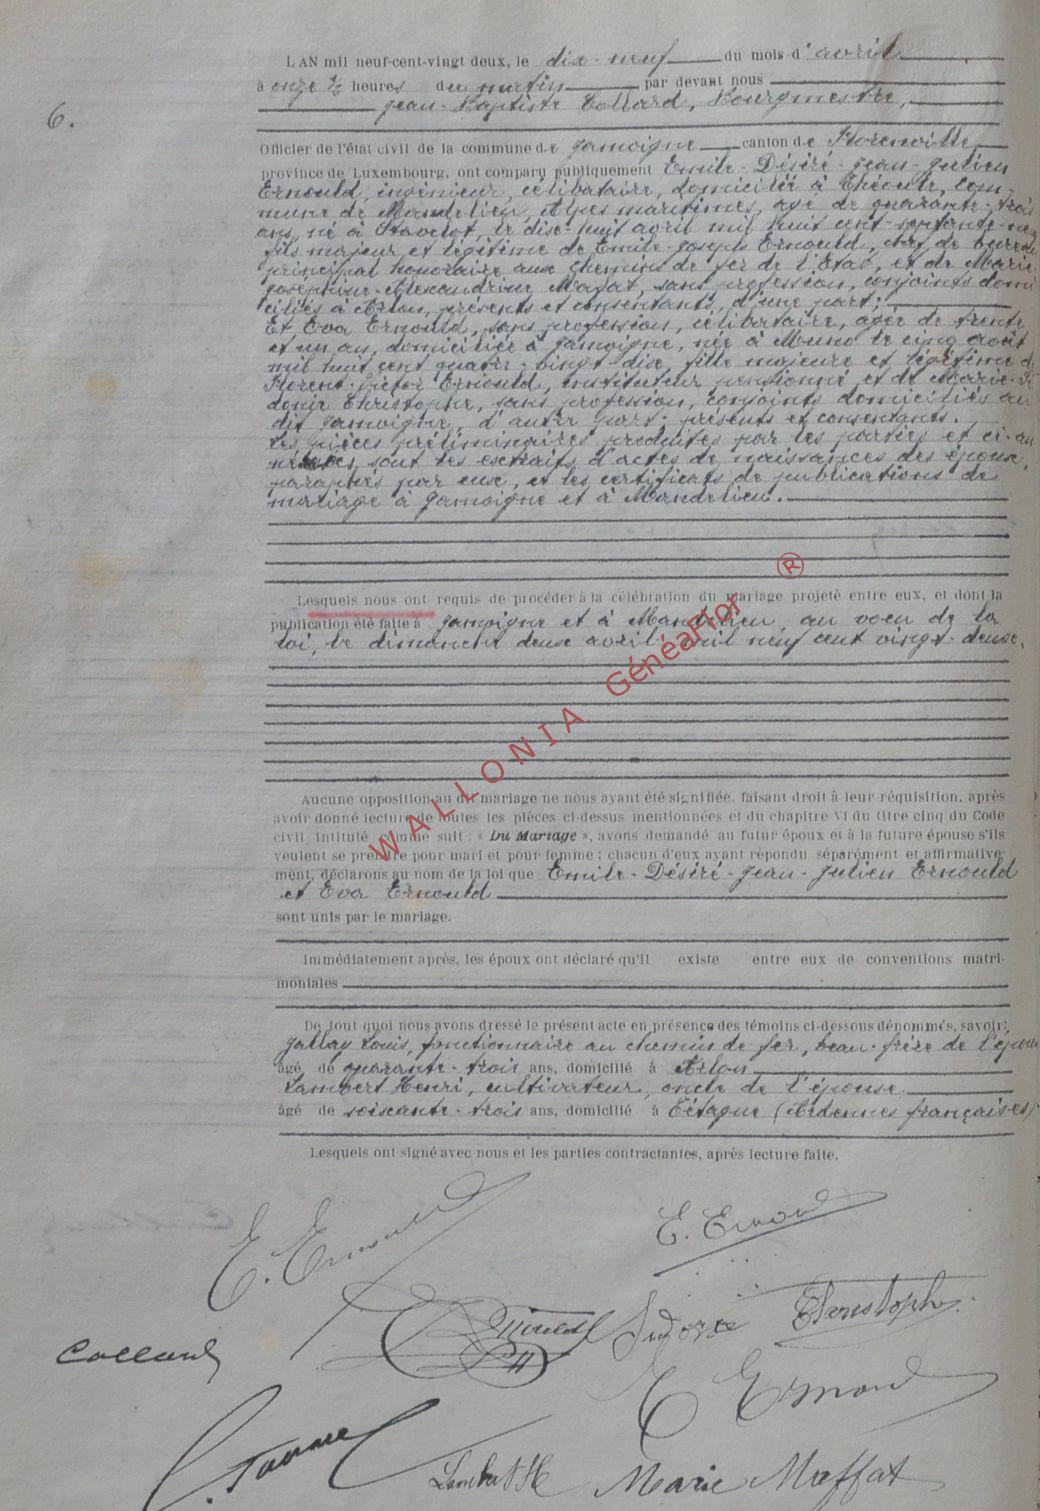 L'AN mil neuf-cent-vingt deux, le dix-neuf du mois d'avril
à onze ½ heures du matin par devant nous
Jean-Baptiste Collard, Bourgmestre,
6.
Officier de l'état civil de la commune de Jamoigne canton de Florenville
province de Luxembourg, ont comparu publiquement Emile-Désiré-Jean-Julien
Ernould, ingénieur, célibataire, domicilié à Théoule, Com-
mune de Mandelieu, Alpes maritimes, agé de quarante-trois
ans, né à Stavelot, le dix-huit avril mil huit cent septante-neuf
fils majeur et légitime de Emile-Joseph Ernould, chef de bureau
principal honoraire aux chemins de fer de l'Etat, et de Marie
Joséphine-Alexandrine Mafat, sans profession, conjoints domi
ciliés à Arlon, présents et consentants, d'une part;
Et Eva Ernould, sans profession, célibataire, agée de trente
et un an, domiciliée à Jamoigne, née à Muno le cinq août
mil huit cent quatre-vingt-dix, fille majeure et légitime de
Florent-Victor Ernould, instituteur pensionné, et de Marie-Si
donie Christophe, sans profession, conjoints domiciliés au
dit Jamoigne, d'autre part, présents et consentants.
Les pièces préliminaires produites par les parties et ci-an
nexées, sont les extraits d'actes de naissances des époux,
paraphés par eux, et les certificats de publications de
mariage à Jamoigne et à Mandelieu.
Lesquels nous ont requis de procéder à la célébration du mariage projeté entre eux, et dont la
publication été faite à Jamoigne et à Mandelieu, au voeu de la
loi, le dimanche deux avril mil neuf cent vingt-deux.
WALLONIA GénéaFlor ®
Aucune opposition au dit mariage ne nous ayant été signifiée, faisant droit à leur réquisition, après
avoir donné lecture de toutes les pièces ci-dessus mentionnées et du chapitre VI du titre cinq du Code
civil intitulé comme suit : « Du Mariage », avons demandé au futur époux et à la future épouse s'ils
veulent se prendre pour mari et pour femme ; chacun d'eux ayant répondu séparément et affirmative-
ment, déclarons au nom de la loi que Emile-Désiré-Jean-Julien Ernould
et Eva Ernould
sont unis par le mariage.
Immédiatement après, les époux ont déclaré qu'il existe entre eux de conventions matri-
moniales
De tout quoi nous avons dressé le présent acte en présence des témoins ci-dessous dénommés, savoir:
Louis, fonctionnaire au chemin de fer, beau-frère de l'époux
âgé de quarante-trois ans, domicilié à Arlon
Lambert Henri, cultivateur, oncle de l'épouse
âgé de soixante-trois ans, domicilié à Tétaigne (Ardennes françaises)
Lesquels ont signé avec nous et les parties contractantes, après lecture faite.
E. Ernould
E. Ernould
Sidonie Christophe
Collard
E Ernould
Lambert H
Marie Maffat